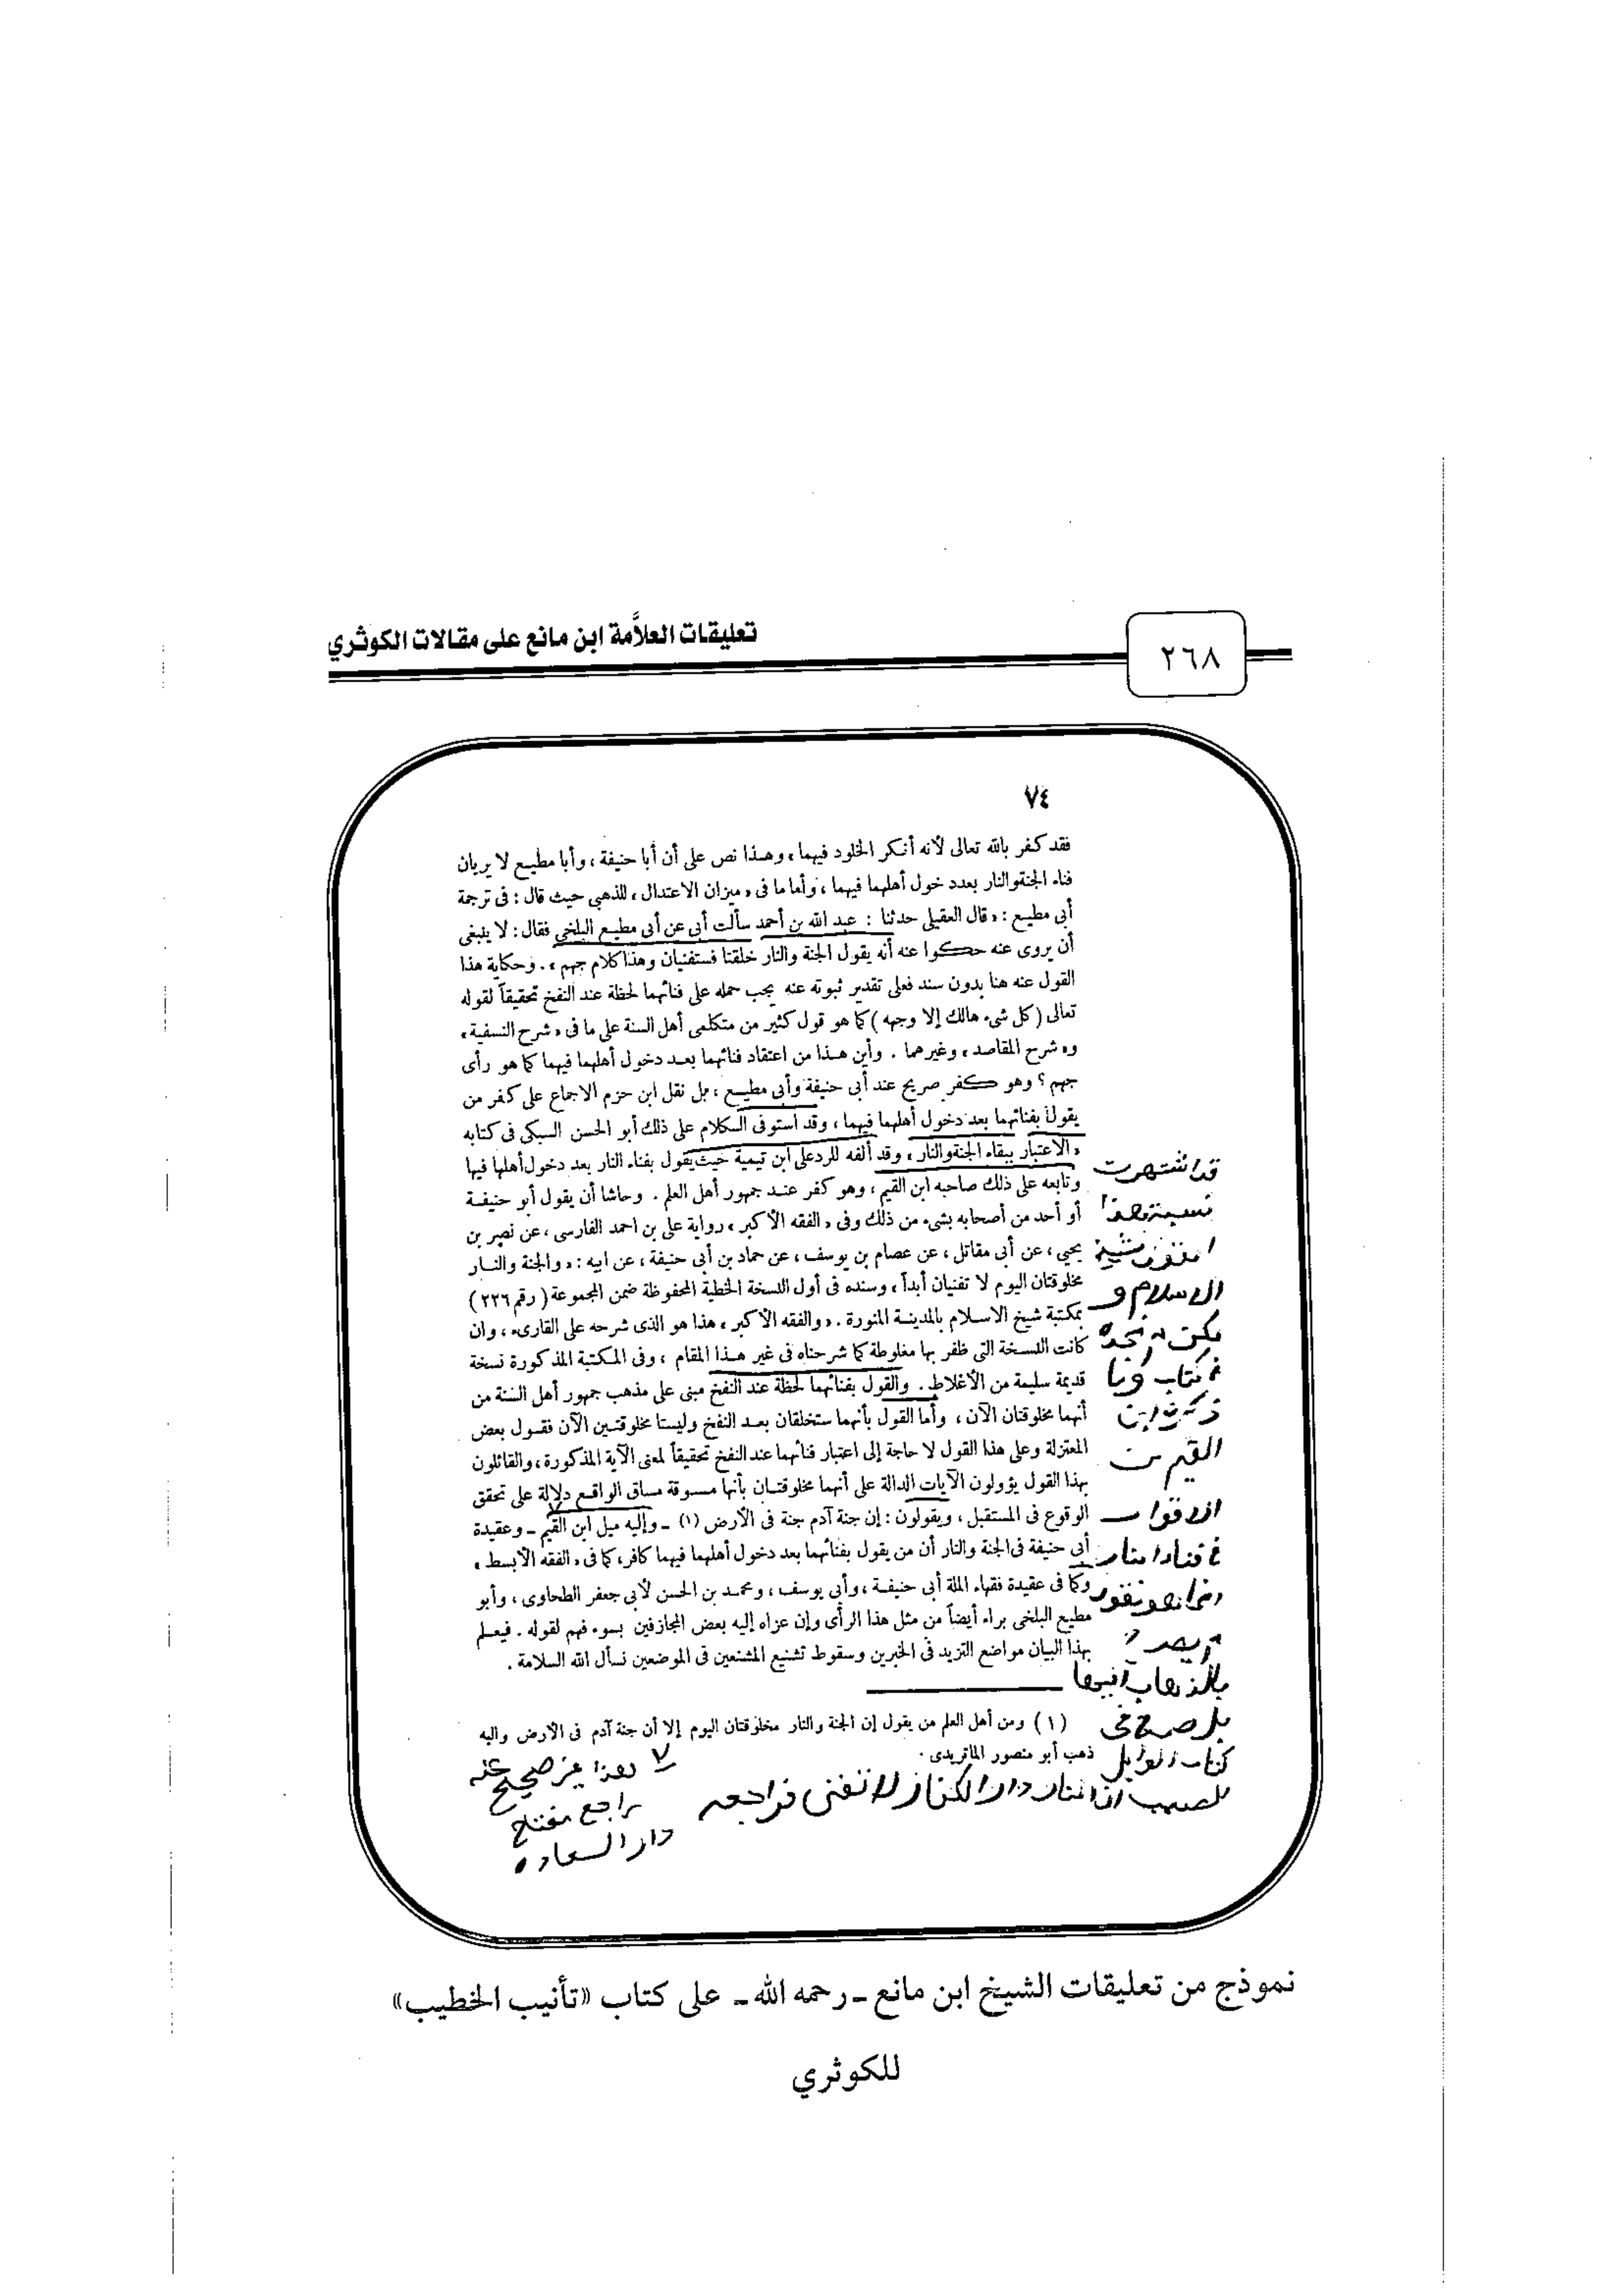 تعليقات العلاَّمة ابن مانع على مقالات الكوثري
٢٦٨
٧٤
فقد كفر بالله تعالى لأنه أنكر الخلود فيهما، وهذا نص على أن أبا حنيفة، وأبا مطيع لا يريان
فناء الجنة والنار بعدد خول أهلهما فيهما، وأما ما فى «ميزان الاعتدال» للذهبى حيث قال: فى ترجمة
أبى مطيع: «قال العقيلى حدثنا: عبد الله بن أحمد سألت أبى عن أبى مطيع البلخى فقال: لا ينبغى
أن يروى عنه حكوا عنه أنه يقول الجنة والنار خلقتا فستفنيان وهذا كلام جهم». وحكاية هذا
القول عنه هنا بدون سند فعلى تقدير ثبوته عنه يجب حمله على فنائهما لحظة عند النفخ تحقيقاً لقوله
تعالى (كل شىء هالك إلا وجهه) كما هو قول كثير من متكلمى أهل السنة على ما فى «شرح النسفية»
و«شرح المقاصد» وغيرهما. وأين هذا من اعتقاد فنائهما بعد دخول أهلهما فيهما كما هو رأى
جهم؟ وهو كفر صريح عند أبى حنيفة وأبى مطيع، بل نقل ابن حزم الاجماع على كفر من
يقول بفنائهما بعد دخول أهلهما فيهما، وقد استوفى الكلام على ذلك أبو الحسن السبكى فى كتابه
«الاعتبار ببقاء الجنة والنار» وقد ألفه للرد على ابن تيمية حيث يقول بفناء النار بعد دخول أهلها فيها
وتابعه على ذلك صاحبه ابن القيم، وهو كفر عند جمهور أهل العلم. وحاشا أن يقول أبو حنيفة
أو أحد من أصحابه بشىء من ذلك وفى «الفقه الأكبر» رواية على بن احمد الفارسى، عن نصير بن
يحيى، عن أبى مقاتل، عن عصام بن يوسف، عن حماد بن أبى حنيفة، عن ابيه: «والجنة والنار
مخلوقتان اليوم لا تفنيان أبداً» وسنده فى أول النسخة الخطية المحفوظة ضمن المجموعة (رقم ٢٢٦)
بمكتبة شيخ الاسلام بالمدينة المنورة. «والفقه الأكبر» هذا هو الذى شرحه على القارىء، وان
كانت النسخة التى ظفر بها مغلوطة كما شرحناه فى غير هذا المقام، وفى المكتبة المذكورة نسخة
قديمة سليمة من الأغلاط. والقول بفنائهما لحظة عند النفخ مبنى على مذهب جمهور أهل السنة من
أنهما مخلوقتان الآن، وأما القول بأنهما ستخلقان بعد النفخ وليستا مخلوقتين الآن فقول بعض
المعتزلة وعلى هذا القول لا حاجة إلى اعتبار فنائهما عند النفخ تحقيقاً لمعنى الآية المذكورة، والقائلون
بهذا القول يؤولون الآيات الدالة على أنهما مخلوقتان بأنها مسوقة مساق الواقع دلالة على تحقق
الوقوع فى المستقبل، ويقولون: إن جنة آدم جنة فى الأرض (١) ـ وإليه ميل ابن القيم ـ وعقيدة
أبى حنيفة فى الجنة والنار أن من يقول بفنائهما بعد دخول أهلهما فيهما كافر، كما فى «الفقه الأبسط»
وكما فى عقيدة فقهاء الملة أبى حنيفة، وأبى يوسف، ومحمد بن الحسن لأبى جعفر الطحاوى، وأبو
مطيع البلخى براء أيضاً من مثل هذا الرأى وإن عزاه إليه بعض المجازفين بسوء فهم لقوله. فيعلم
بهذا البيان مواضع التزيد فى الخبرين وسقوط تشنيع المشنعين فى الموضعين نسأل الله السلامة.
(١) ومن أهل العلم من يقول إن الجنة والنار مخلوقتان اليوم إلا أن جنة آدم فى الأرض واليه
ذهب أبو منصور الماتريدى.
قد اشتهرت
نسبة هذا
القول لشيخ
الاسلام و
لكن لم نجده
فى كتاب
ابن
القيم
الأقوال
فى فناء النار
بل صرح فى
كتاب الوابل
الصيب أن النار دار الكفار لا تفنى فراجعه
لا هذا غير صحيح عنه
راجع مفتاح
دار السعادة
نموذج من تعليقات الشيخ ابن مانع ـ رحمه الله ـ على كتاب «تأنيب الخطيب»
للكوثري